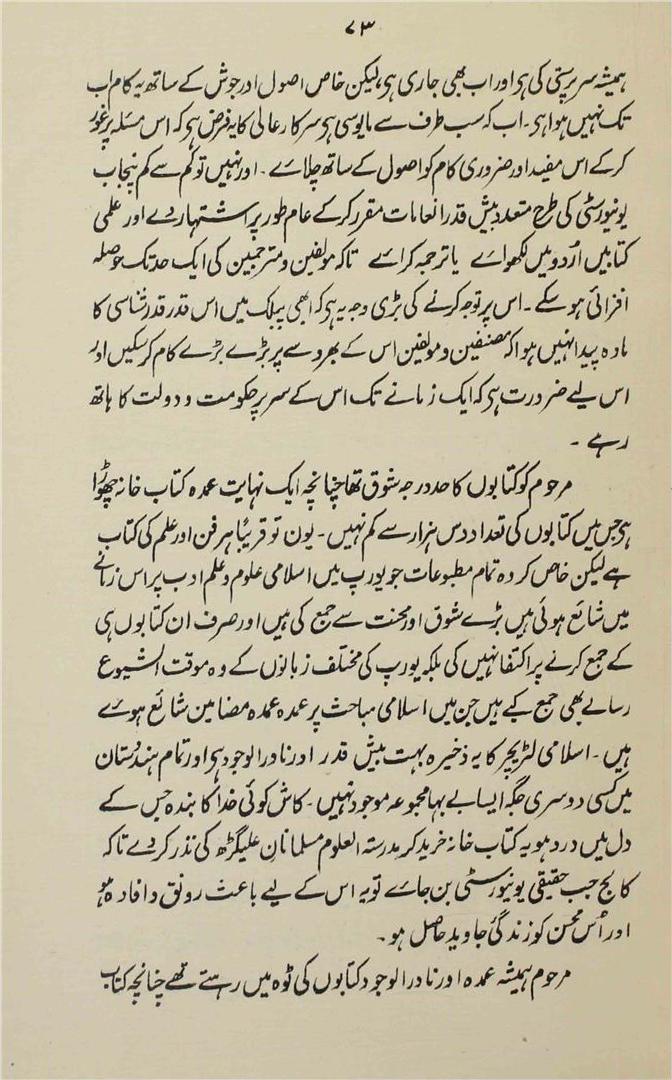 ۷۳
ہمیشہ سرپرستی کی ہی اور اب بھی جاری ہی، لیکن خاص اصول اور جوش کے ساتھ یہ کام اب
تک نہیں ہوا ہی۔ اب کہ سب طرف سے مایوسی ہی سرکار عالی کا یہ فرض ہی کہ اس مسئلہ پر غور
کرکے اس مفید اور ضروری کام کو اصول کے ساتھ چلائے۔ اور نہیں تو کم سے کم پنجاب
یونیورسٹی کی طرح متعدد بیش قدر انعامات مقرر کرکے عام طور پر اشتہار دے اور علمی
کتابیں اُردو میں لکھوائے یا ترجمہ کرائے تاکہ مولفین و مترجمین کی ایک حد تک حوصلہ
افزائی ہو سکے۔ اس پر توجہ کرنے کی بڑی وجہ یہ ہی کہ ابھی پبلک میں اس قدر قدر شناسی کا
مادہ پیدا نہیں ہوا کہ مصنفین و مولفین اس کے بھروسے پر بڑے بڑے کام کر سکیں اور
اس لیے ضرورت ہی کہ ایک زمانے تک اس کے سر پر حکومت و دولت کا ہاتھ
رہے ۔
مرحوم کو کتابوں کا حد درجہ شوق تھا چنانچہ ایک نہایت عمدہ کتاب خانہ چھوڑا
ہی جس میں کتابوں کی تعداد دس ہزار سے کم نہیں۔ یوں تو قریباً ہر فن اور علم کی کتاب
ہے لیکن خاص کر وہ تمام مطبوعات جو یورپ میں اسلامی علوم و علم ادب پر اس زمانے
میں شائع ہوئی ہیں بڑے شوق اور محنت سے جمع کی ہیں اور صرف ان کتابوں ہی
کے جمع کرنے پر اکتفا نہیں کی بلکہ یورپ کی مختلف زبانوں کے وہ موقت الشیوع
رسالے بھی جمع کیے ہیں جن میں اسلامی مباحث پر عمدہ عمدہ مضامین شائع ہوئے
ہیں۔ اسلامی لٹریچر کا یہ ذخیرہ بہت بیش قدر اور نادر الوجود ہی اور تمام ہندستان
میں کسی دوسری جگہ ایسا بے بہا مجموعہ موجود نہیں۔ کاش کوئی خدا کا بندہ جس کے
دل میں درد ہو یہ کتاب خانہ خرید کر مدرستہ العلوم مسلمانان علیگڑھ کی نذر کر دے تاکہ
کالج جب حقیقی یونیورسٹی بن جائے تو یہ اس کے لیے باعث رونق و افادہ ہو
اور اُس محسن کو زندگیٔ جاوید حاصل ہو۔
مرحوم ہمیشہ عمدہ اور نادر الوجود کتابوں کی ٹوہ میں رہتے تھے چنانچہ کتاب